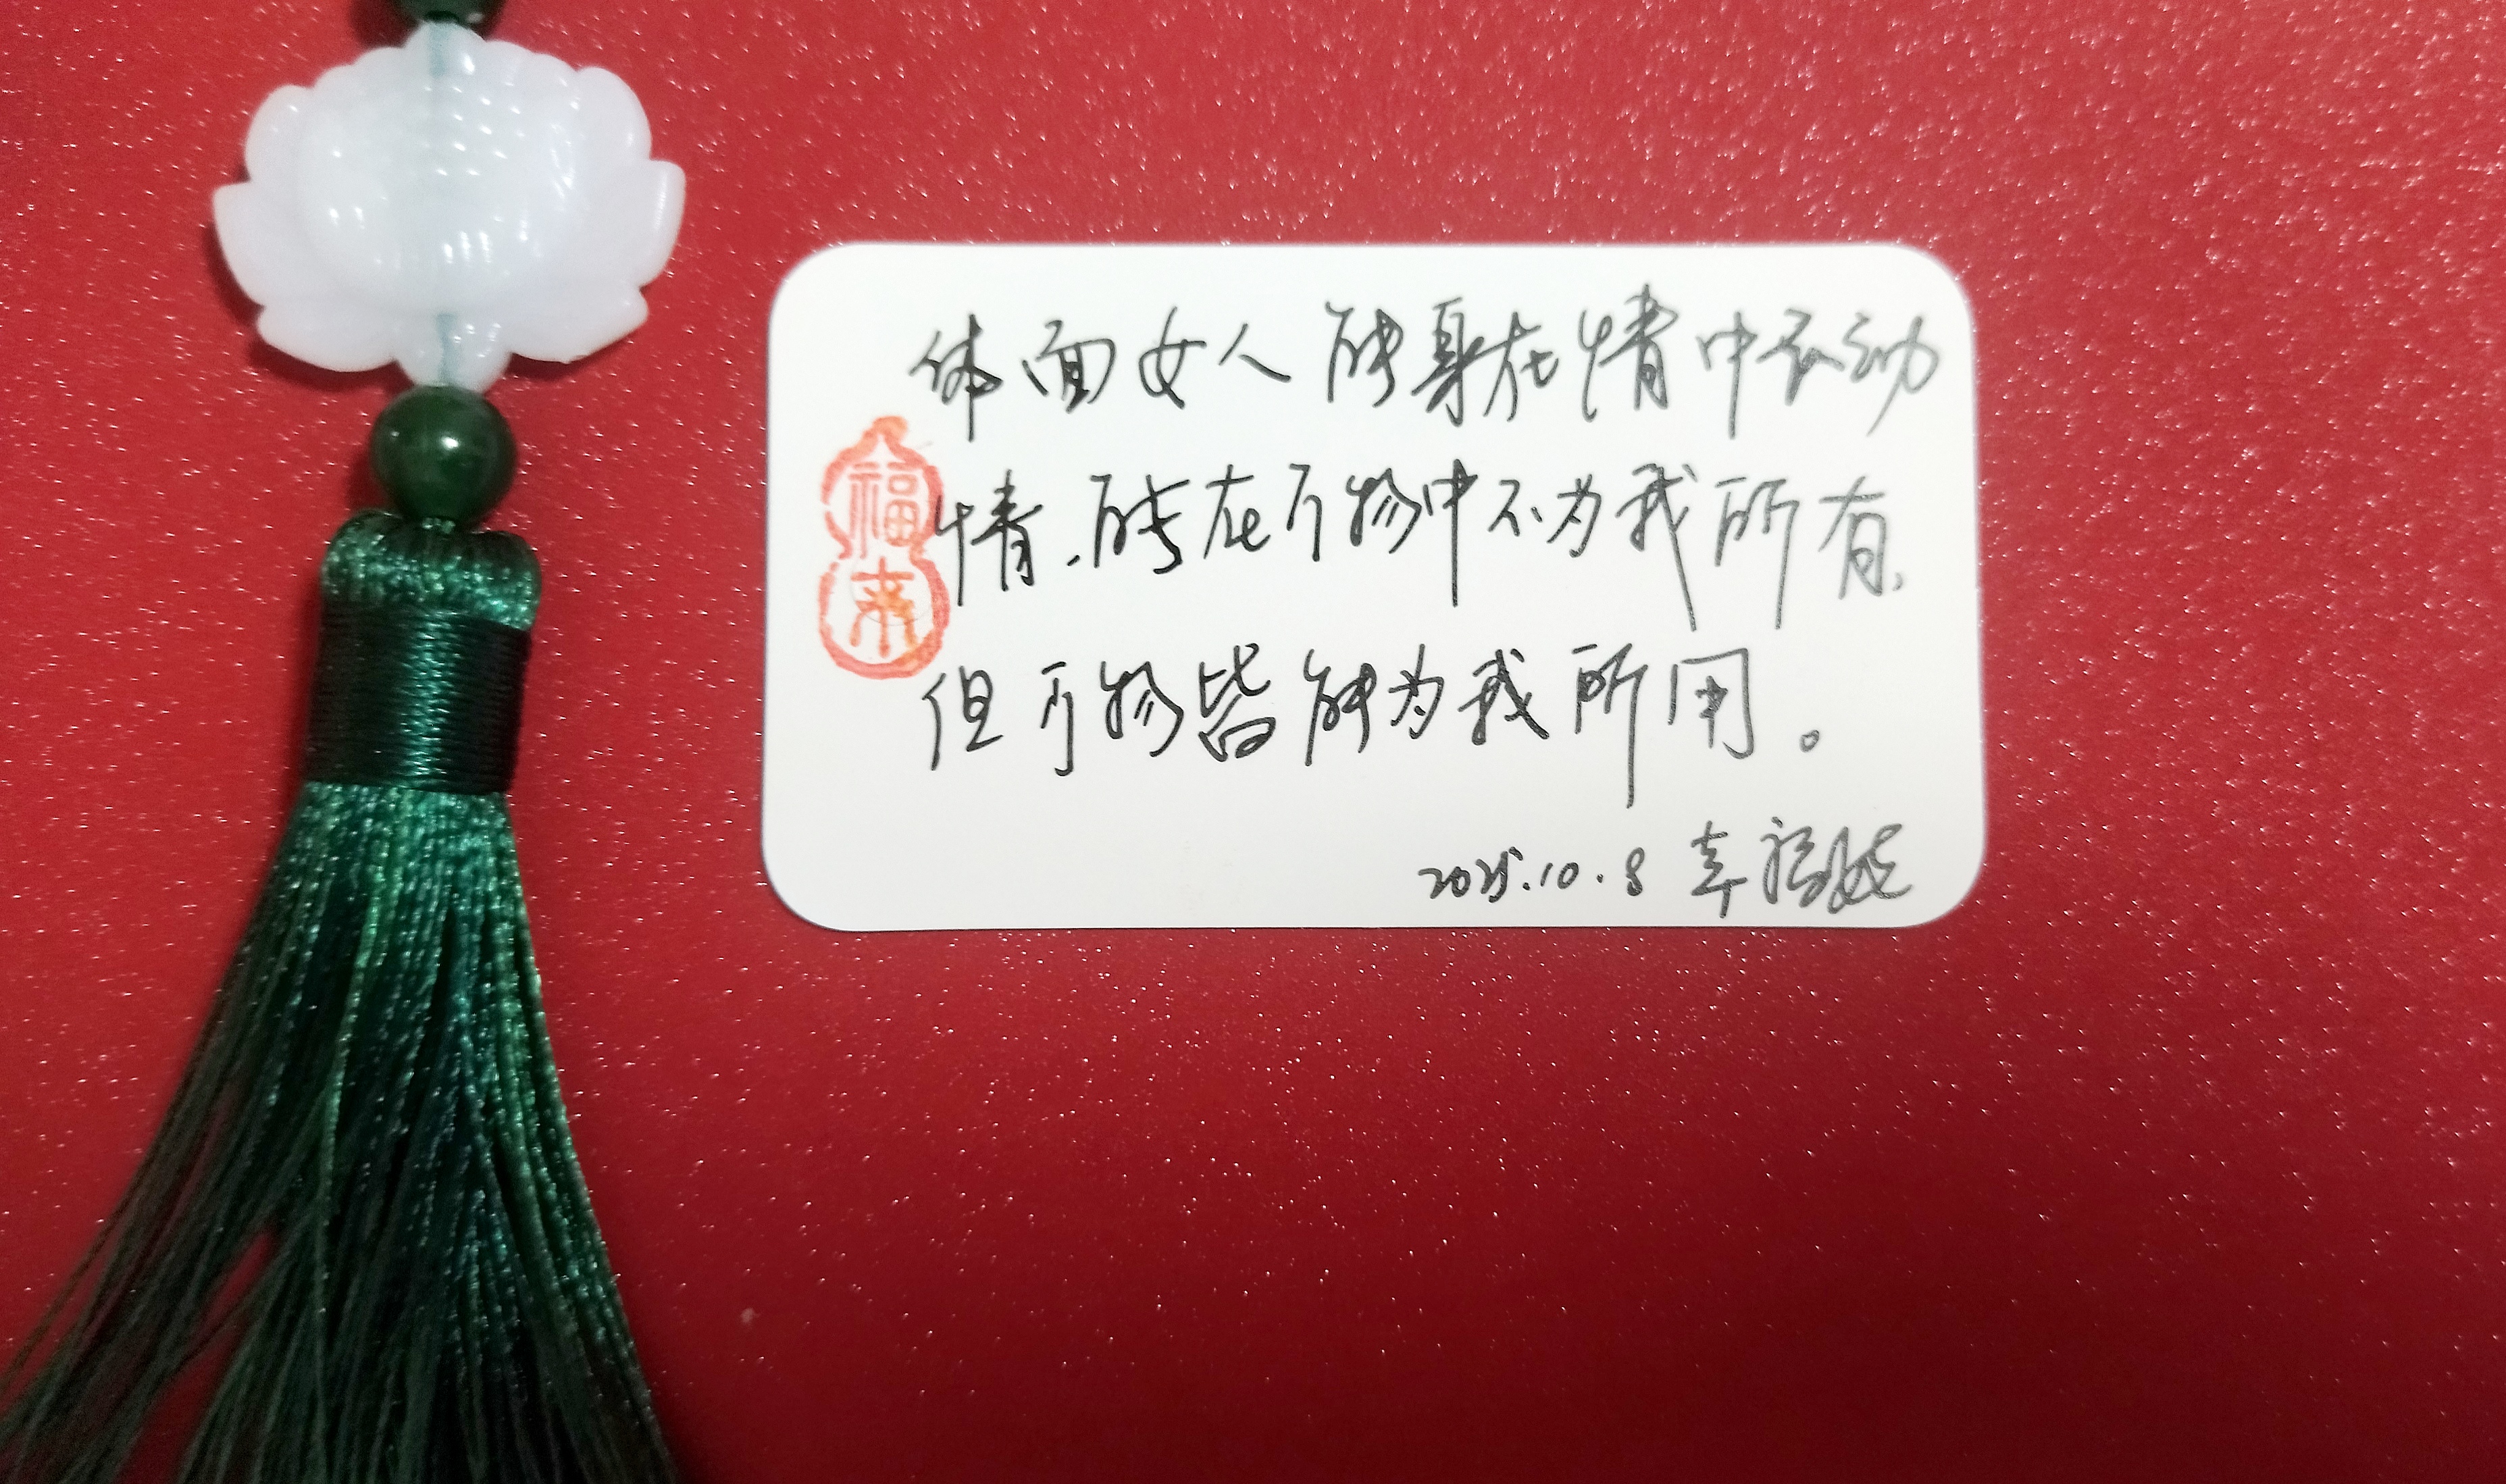 体面女人能身在情中不动
情，能在万物中不为我所有，
但万物皆能为我所用。
2025.10.8 幸福娃
福
来